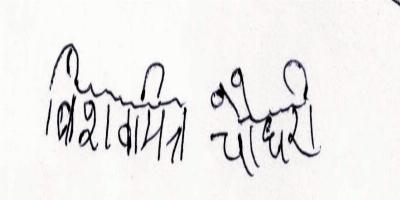 विशवामित्र चौधरी